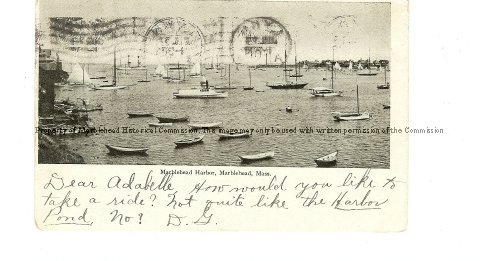 Property of Marblehead Historical Commission. This image may only be used with written permission of the Commission
Marblehead Harbor, Marblehead, Mass.
Dear Adabelle How would you like to
take a ride? Not quite like the Harbor
Pond, No? D.G.